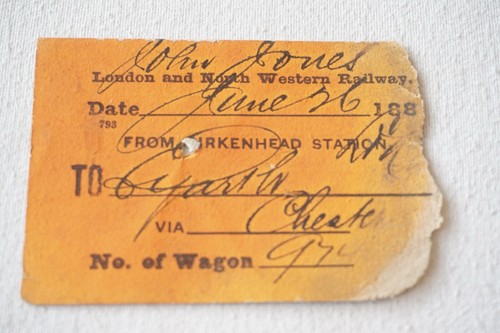 John Jones
London and North Western Railway.
Date June 26 188
793
FROM BIRKENHEAD STATION
TO
VIA Cheste
No. of Wagon